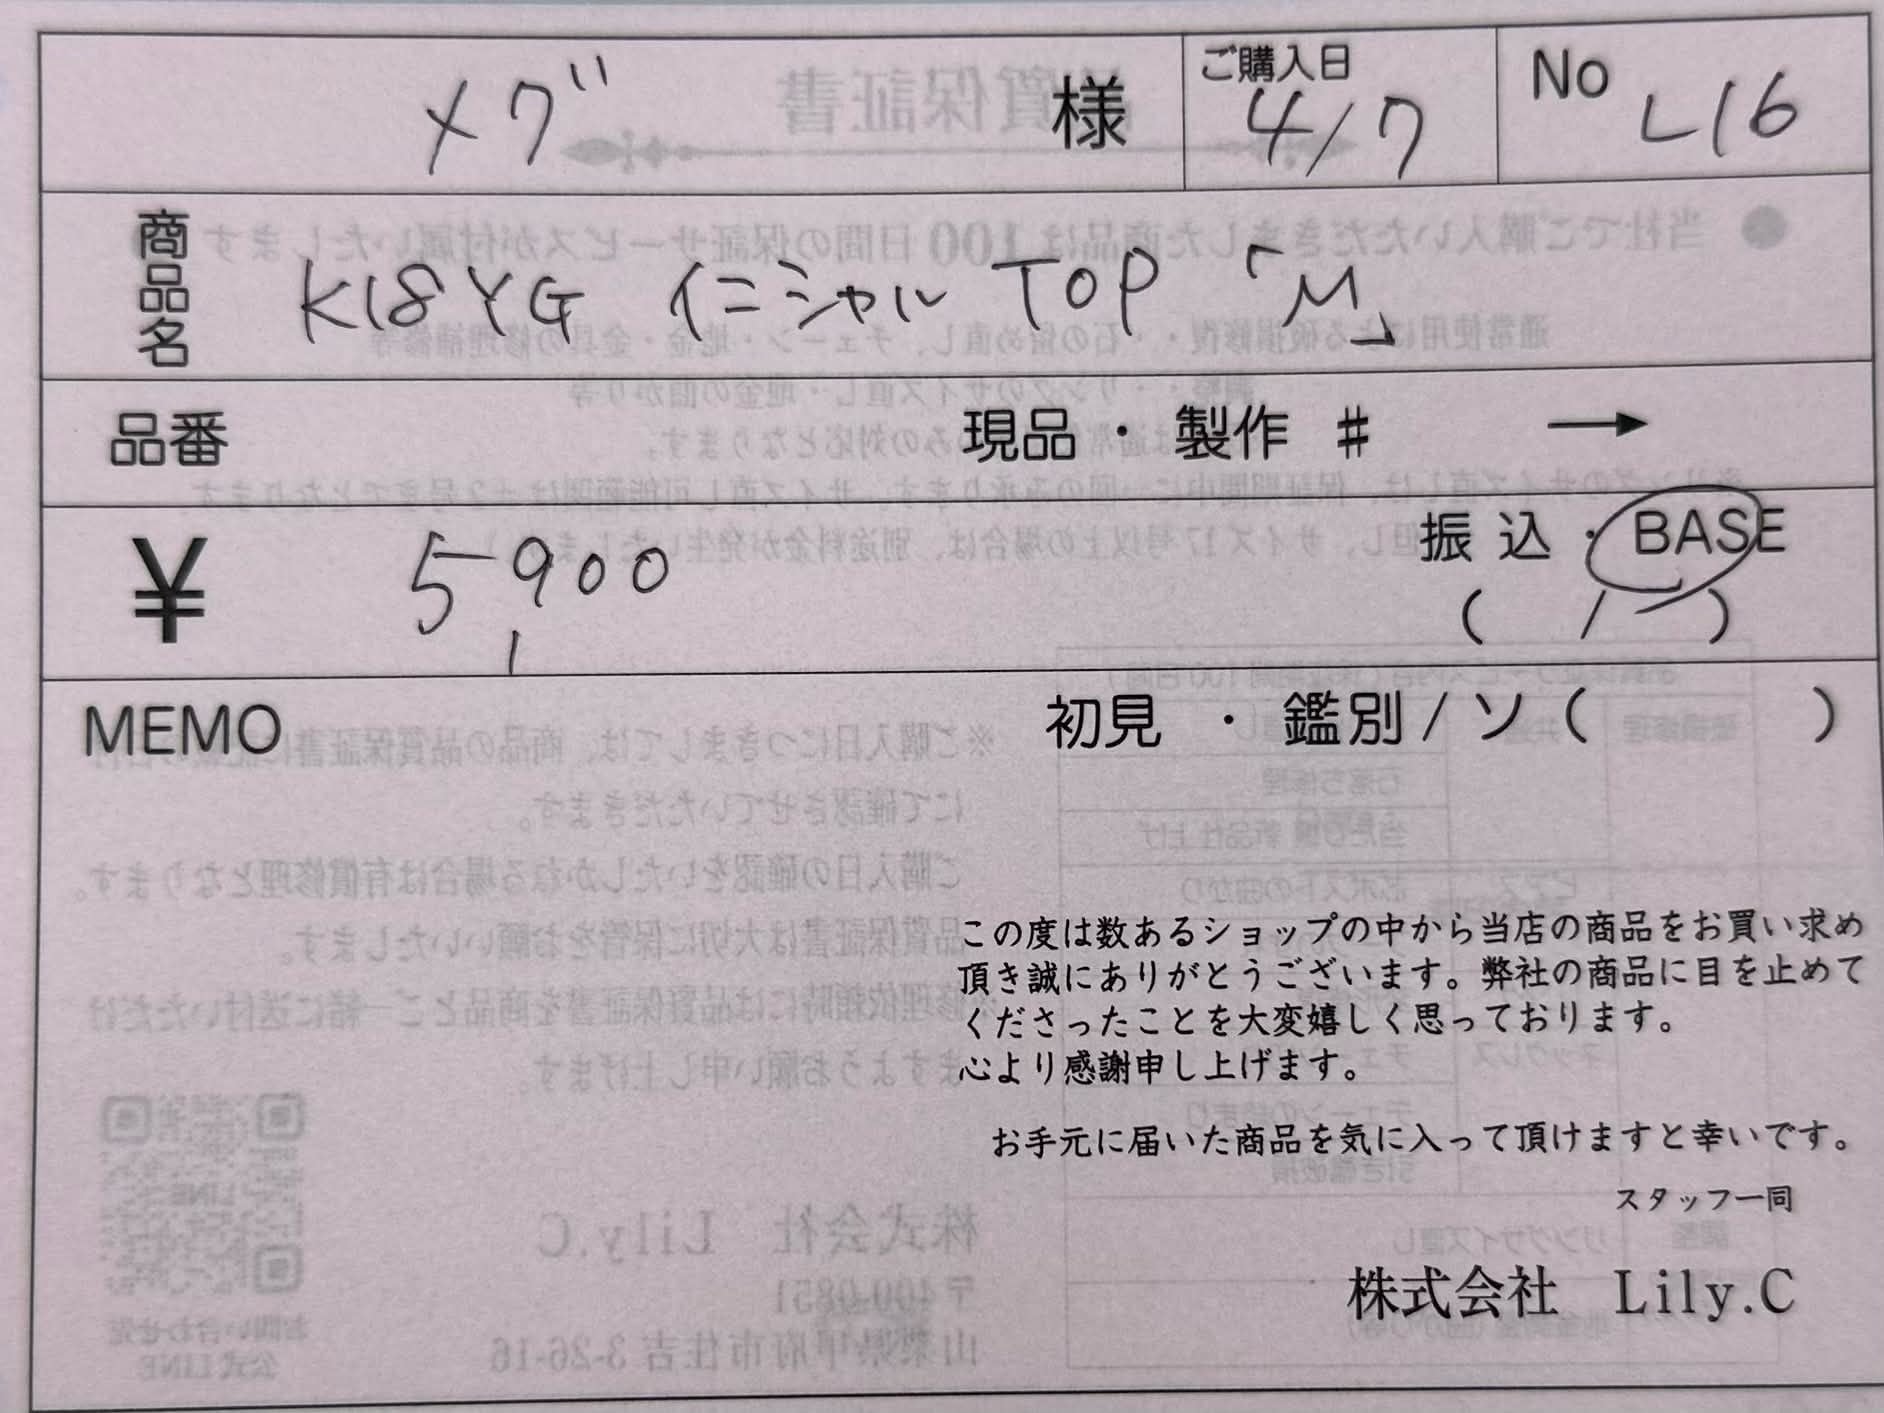 メグ 様 ご購入日 4/7 No L16
商品名 K18YG イニシャル TOP 「M」
品番 現品・製作 # →
¥ 5,900 振込・BASE
( / )
MEMO 初見・鑑別/ソ( )
この度は数あるショップの中から当店の商品をお買い求め
頂き誠にありがとうございます。弊社の商品に目を止めて
くださったことを大変嬉しく思っております。
心より感謝申し上げます。
お手元に届いた商品を気に入って頂けますと幸いです。
スタッフ一同
株式会社 Lily.C